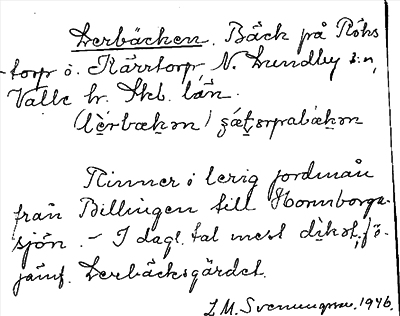 Lerbäcken. Bäck på Röhs
-torp o. Kärrtorp N. Lundby s:n,
Valle hr. Skb. län.
Rinner i lerig jordmån
från Billingen till Hornborga-
sjön. – I dagl. tal mest
jämf. Lerbäcksgärdet.
L.M. Svenungsson. 1946.